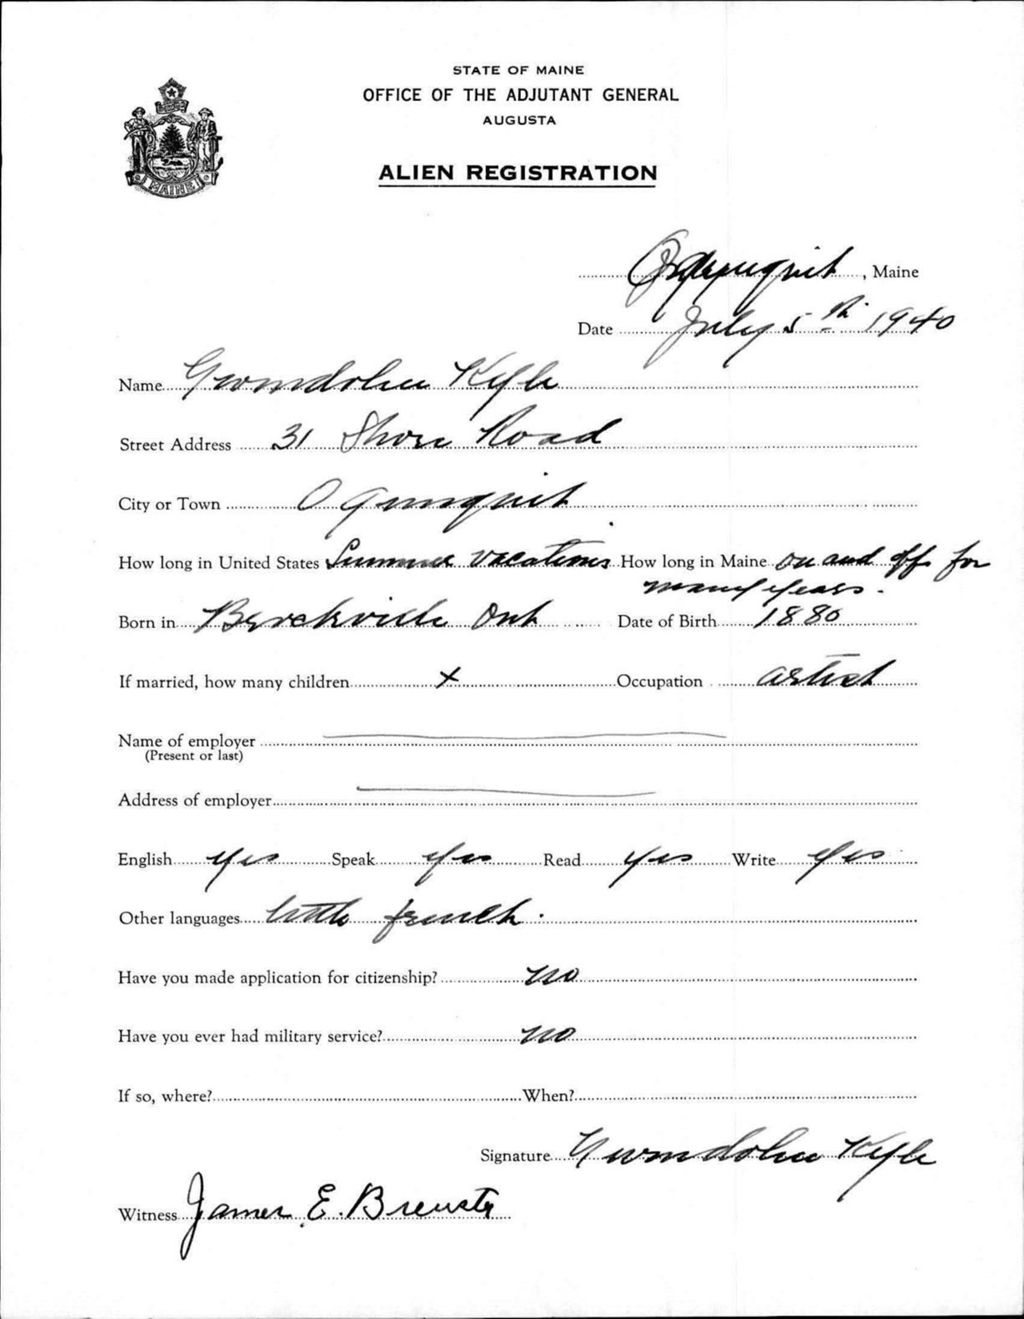 STATE OF MAINE
OFFICE OF THE ADJUTANT GENERAL
AUGUSTA
ALIEN REGISTRATION
MAINE
Ogunquit, Maine
Date July 5th 1940
Name Gwendolen Kyle
Street Address 31 Shore Road
City or Town Ogunquit
How long in United States Summer vacations How long in Maine on and off for
many years.
Born in Brockville Ont Date of Birth 1880
If married, how many children x Occupation artist
Name of employer
(Present or last)
Address of employer
English yes Speak yes Read yes Write yes
Other languages little french.
Have you made application for citizenship? no
Have you ever had military service? no
If so, where? When?
Signature Gwendolen Kyle
Witness James E. Brewster